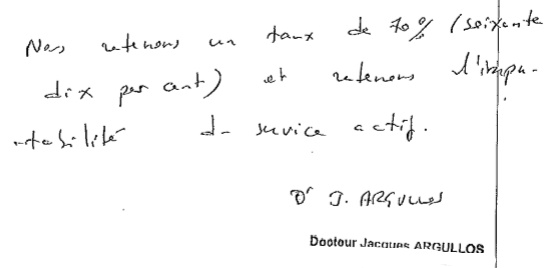 Nous retenons un taux de 70% (soixante
dix par cent) et retenons l'impu-
-tabilité du service actif.
Dr J. ARGULLOS
Docteur Jacques ARGULLOS